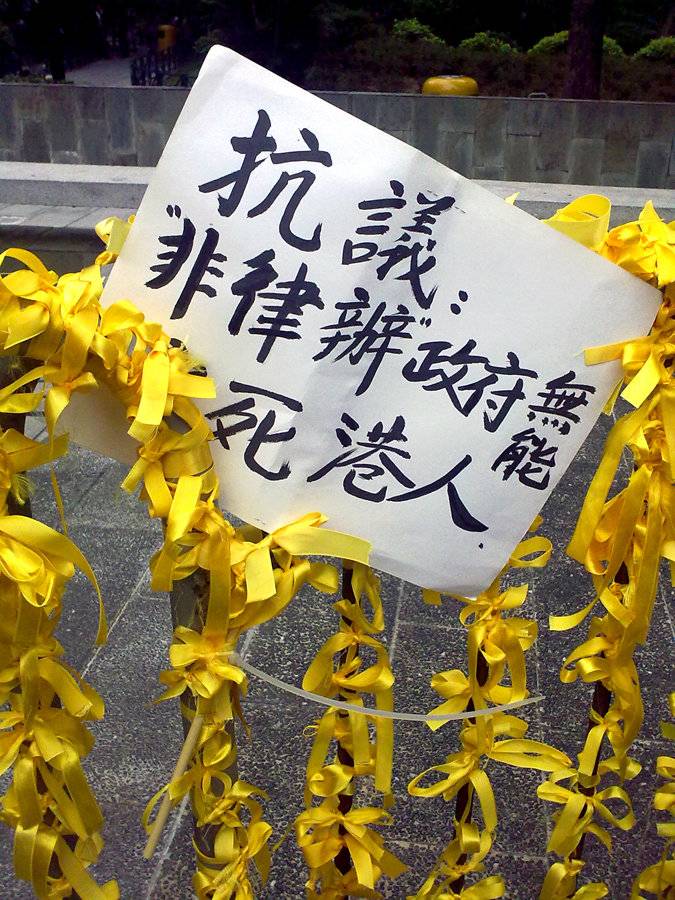 抗議：
"非律辦"政府無能
死港人.